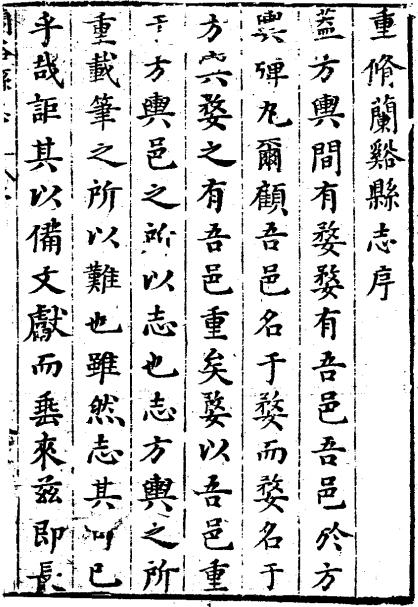 重脩蘭谿縣志序
蓋方輿間有婺婺有吾邑吾邑於方
輿彈丸爾顧吾邑名于婺而婺名于
方婺之有吾邑重矣婺以吾邑重
于方輿邑之所以志也志方輿之所
重載筆之所以難也雖然志其可已
乎哉詎其以備文獻而垂來茲即長